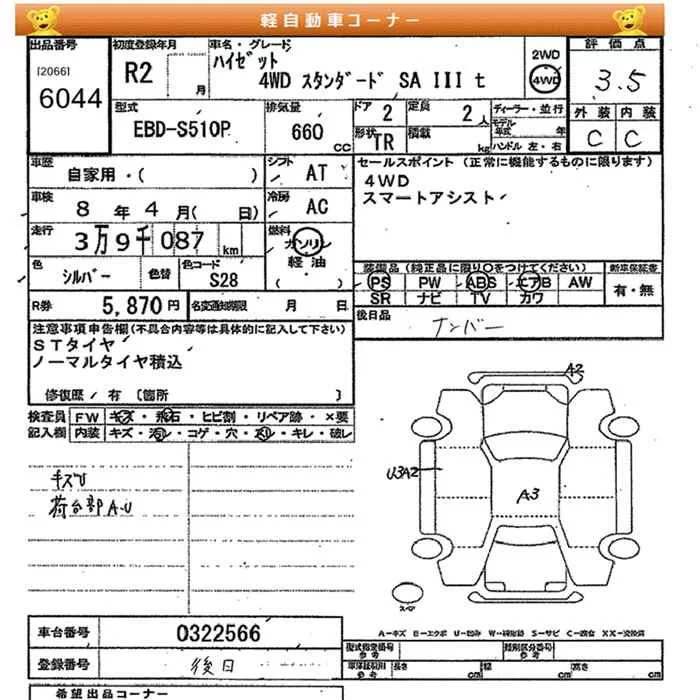 軽自動車コーナー
出品番号 初度登録年月 車名・グレード 評価点
[2066] 6044
R2 月
ハイゼット
4WD スタンダード SA III t
2WD 4WD
3.5
型式 排気量 ドア 定員 ディーラー・並行 外装 内装
EBD-S510P 660 cc 2 2人
モデル年式 年
形状 TR 積載 kg ハンドル 左・右
C C
車歴 自家用・( ) シフト AT
セールスポイント (正常に機能するものに限ります)
4WD
スマートアシスト
車検 8年 4月( 日) 冷房 AC
走行 3万9千087 km 燃料 ガソリン 軽油
色 シルバー 色替 色コード S28
装備品 (純正品に限り○をつけてください) 新車保証書
PS PW ABS エアB AW 有・無
SR ナビ TV カワ
R券 5,870円 名変通知期限 月 日
後日品 ナンバー
注意事項申告欄(不具合内容等は具体的に記入して下さい)
STタイヤ
ノーマルタイヤ積込
修復歴/有 [箇所 ]
検査員 FW キズ・飛石・ヒビ割・リペア跡・×要
記入欄 内装 キズ・汚レ・コゲ・穴・スレ・キレ・破レ
キズU
荷台部A.U
A2
U3A2
A3
スペア
車台番号 0322566
登録番号 後日
A-キズ E-エクボ U-凹み W-補修跡 S-サビ C-腐食 XX-交換済
型式指定番号 参考 類別区分番号 参考
車体証明用 参考 長さ cm 幅 cm 高さ cm
希望出品コーナー